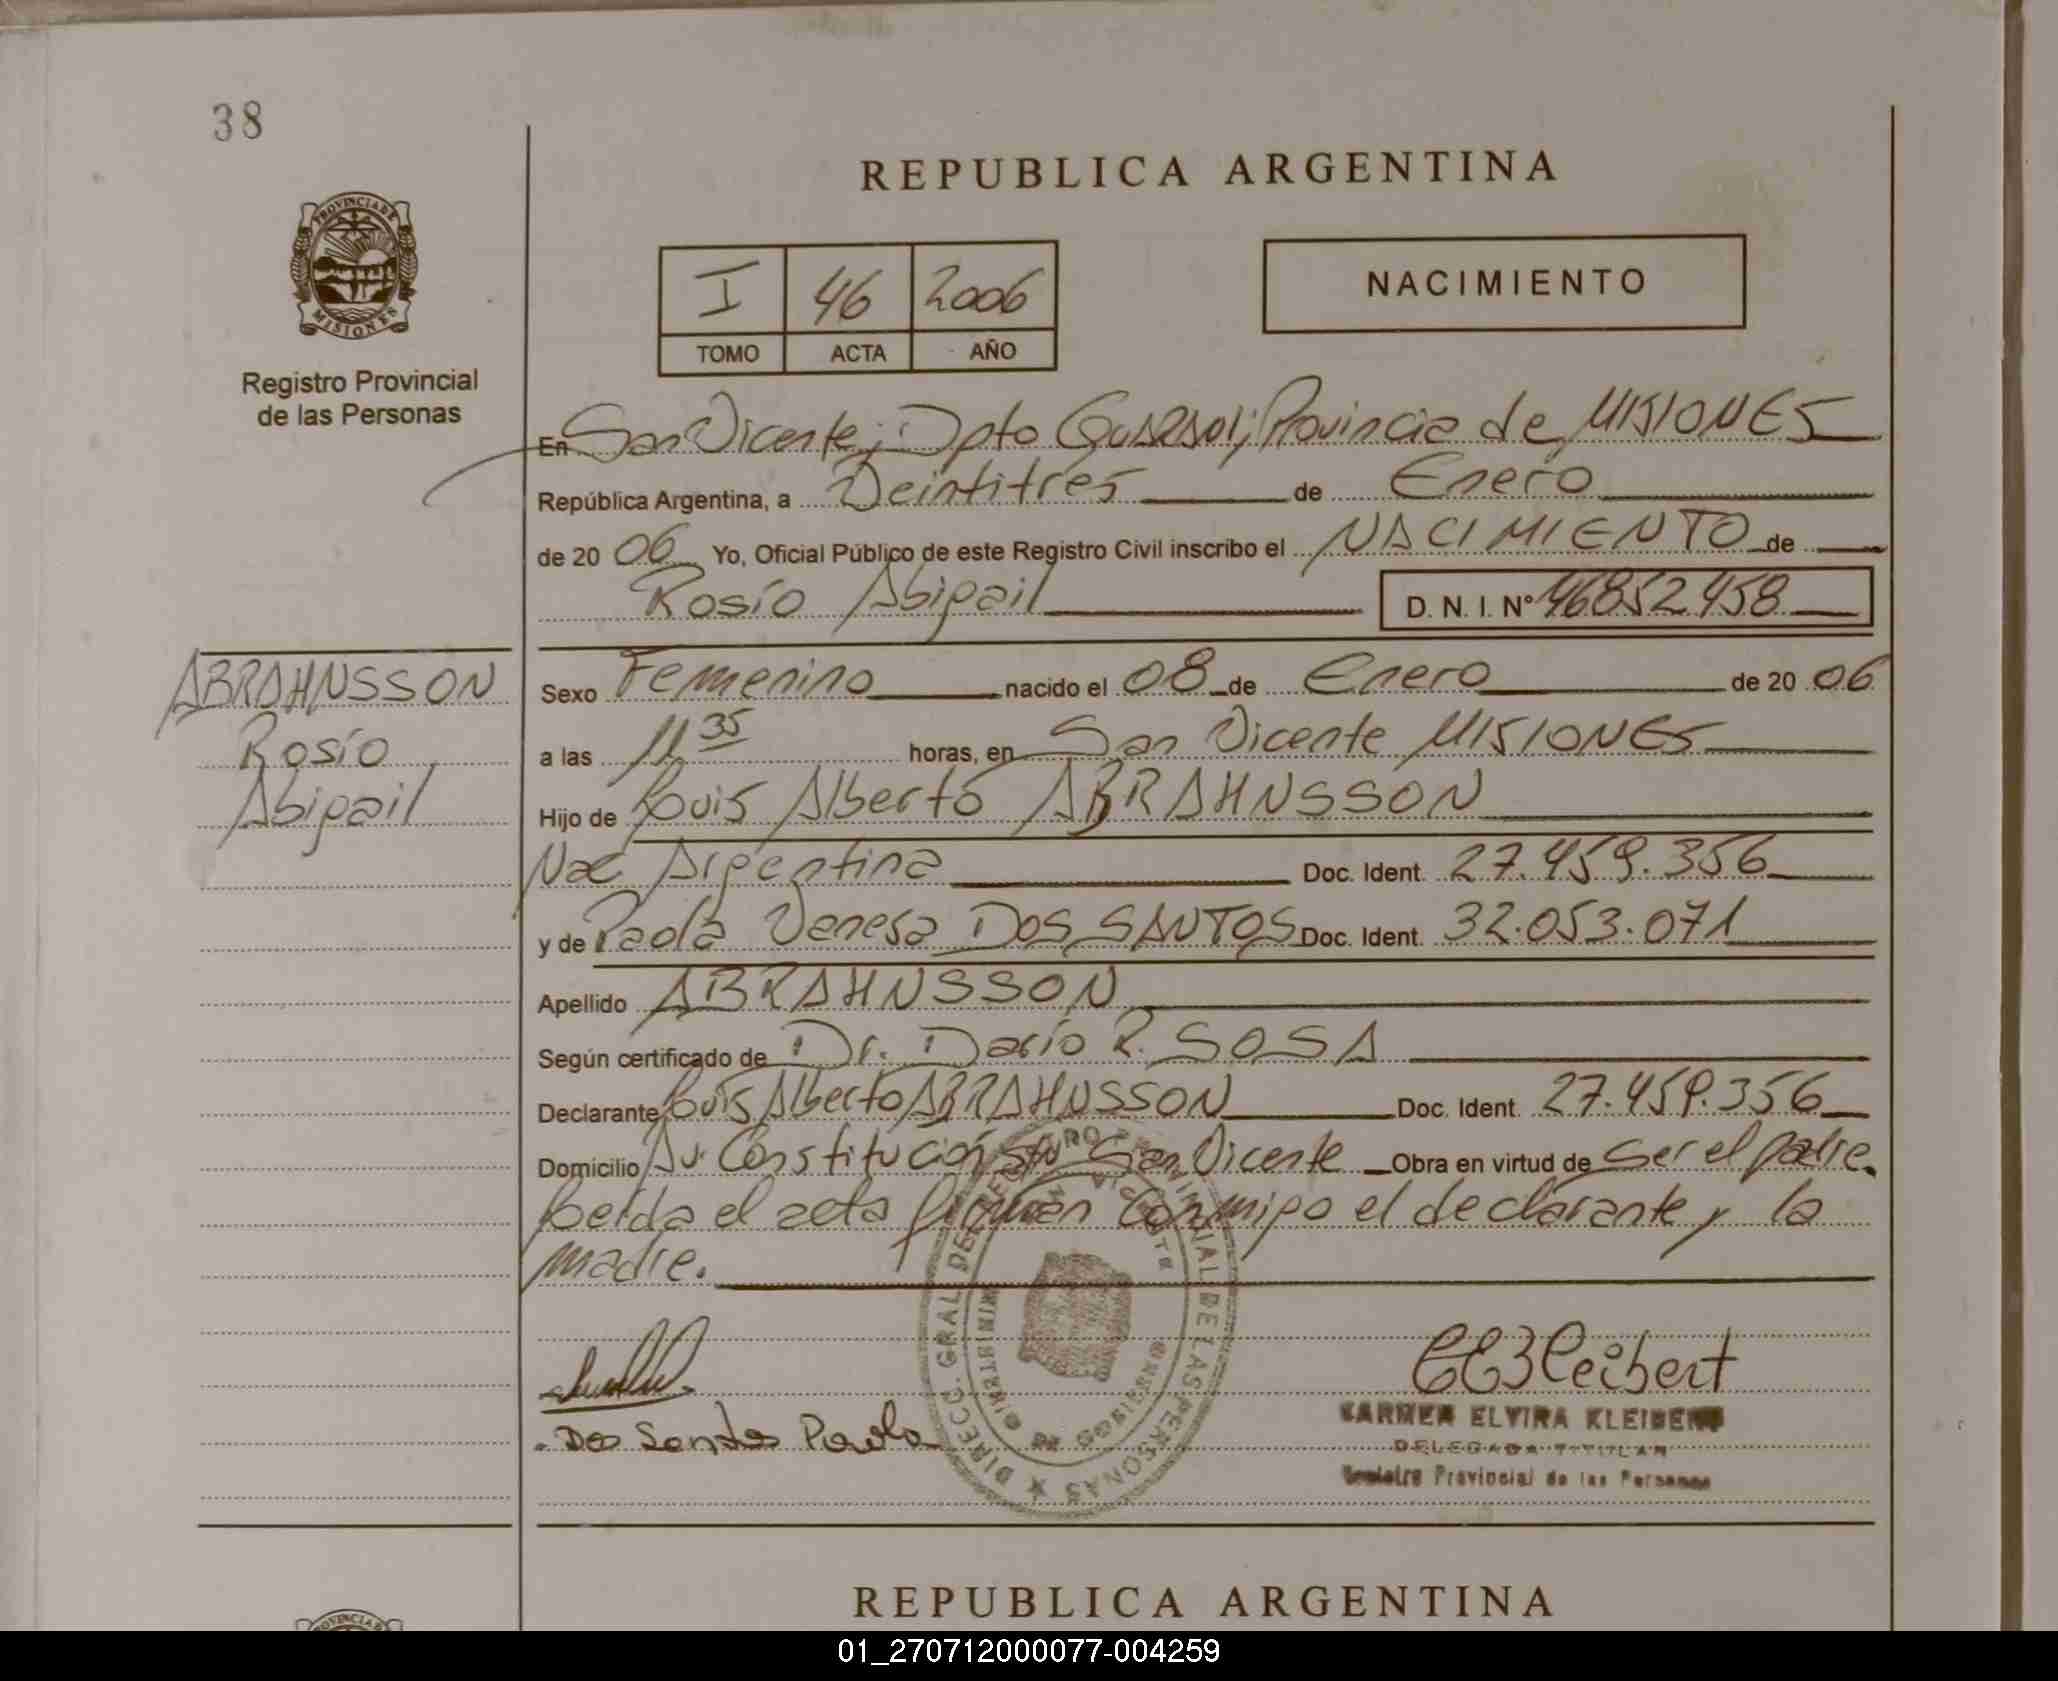 38
REPUBLICA ARGENTINA
PROVINCIA DE
MISIONES
Registro Provincial
de las Personas
I 46 2006
TOMO ACTA AÑO
NACIMIENTO
En San Vicente; Dpto Guaraní; Provincia de MISIONES
República Argentina, a Veintitres de Enero
de 20 06 Yo, Oficial Público de este Registro Civil inscribo el NACIMIENTO de
Rosío Abigail D. N. I. N° 46852458
ABRAHNSSON
Rosío
Abigail
Sexo Femenino nacido el 08 de Enero de 20 06
a las 11 35 horas, en San Vicente MISIONES
Hijo de Luis Alberto ABRAHNSSON
Nac Argentina Doc. Ident. 27.459.356
y de Paola Vanesa DOS SANTOS Doc. Ident. 32.053.071
Apellido ABRAHNSSON
Según certificado de Dr. Darío R. SOSA
Declarante Luis Alberto ABRAHNSSON Doc. Ident. 27.459.356
Domicilio Av. Constitución S/N San Vicente Obra en virtud de Ser el padre.
Leída el acta firman conmigo el declarante y la
madre.
DIRECC. GRAL. DEL REGISTRO PROVINCIAL DE LAS PERSONAS
MINISTERIO DE GOBIERNO
Dos Santos Paola
CEKleibert
CARMEN ELVIRA KLEIBERT
DELEGADA TITULAR
Registro Provincial de las Personas
REPUBLICA ARGENTINA
PROVINCIA DE
01_270712000077-004259